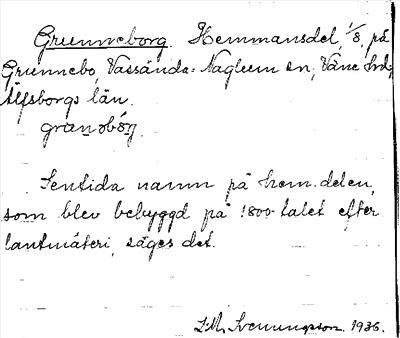 Grunneborg. Hemmansdel, 1/8, på
Grunnebo, Vassända-Naglum sn, Väne hd,
Älfsborgs län.
Sentida namn på hem.delen,
som blev bebyggd på 1800-talet efter
lantmäteri, säges det.
Svenungsson. 1936.